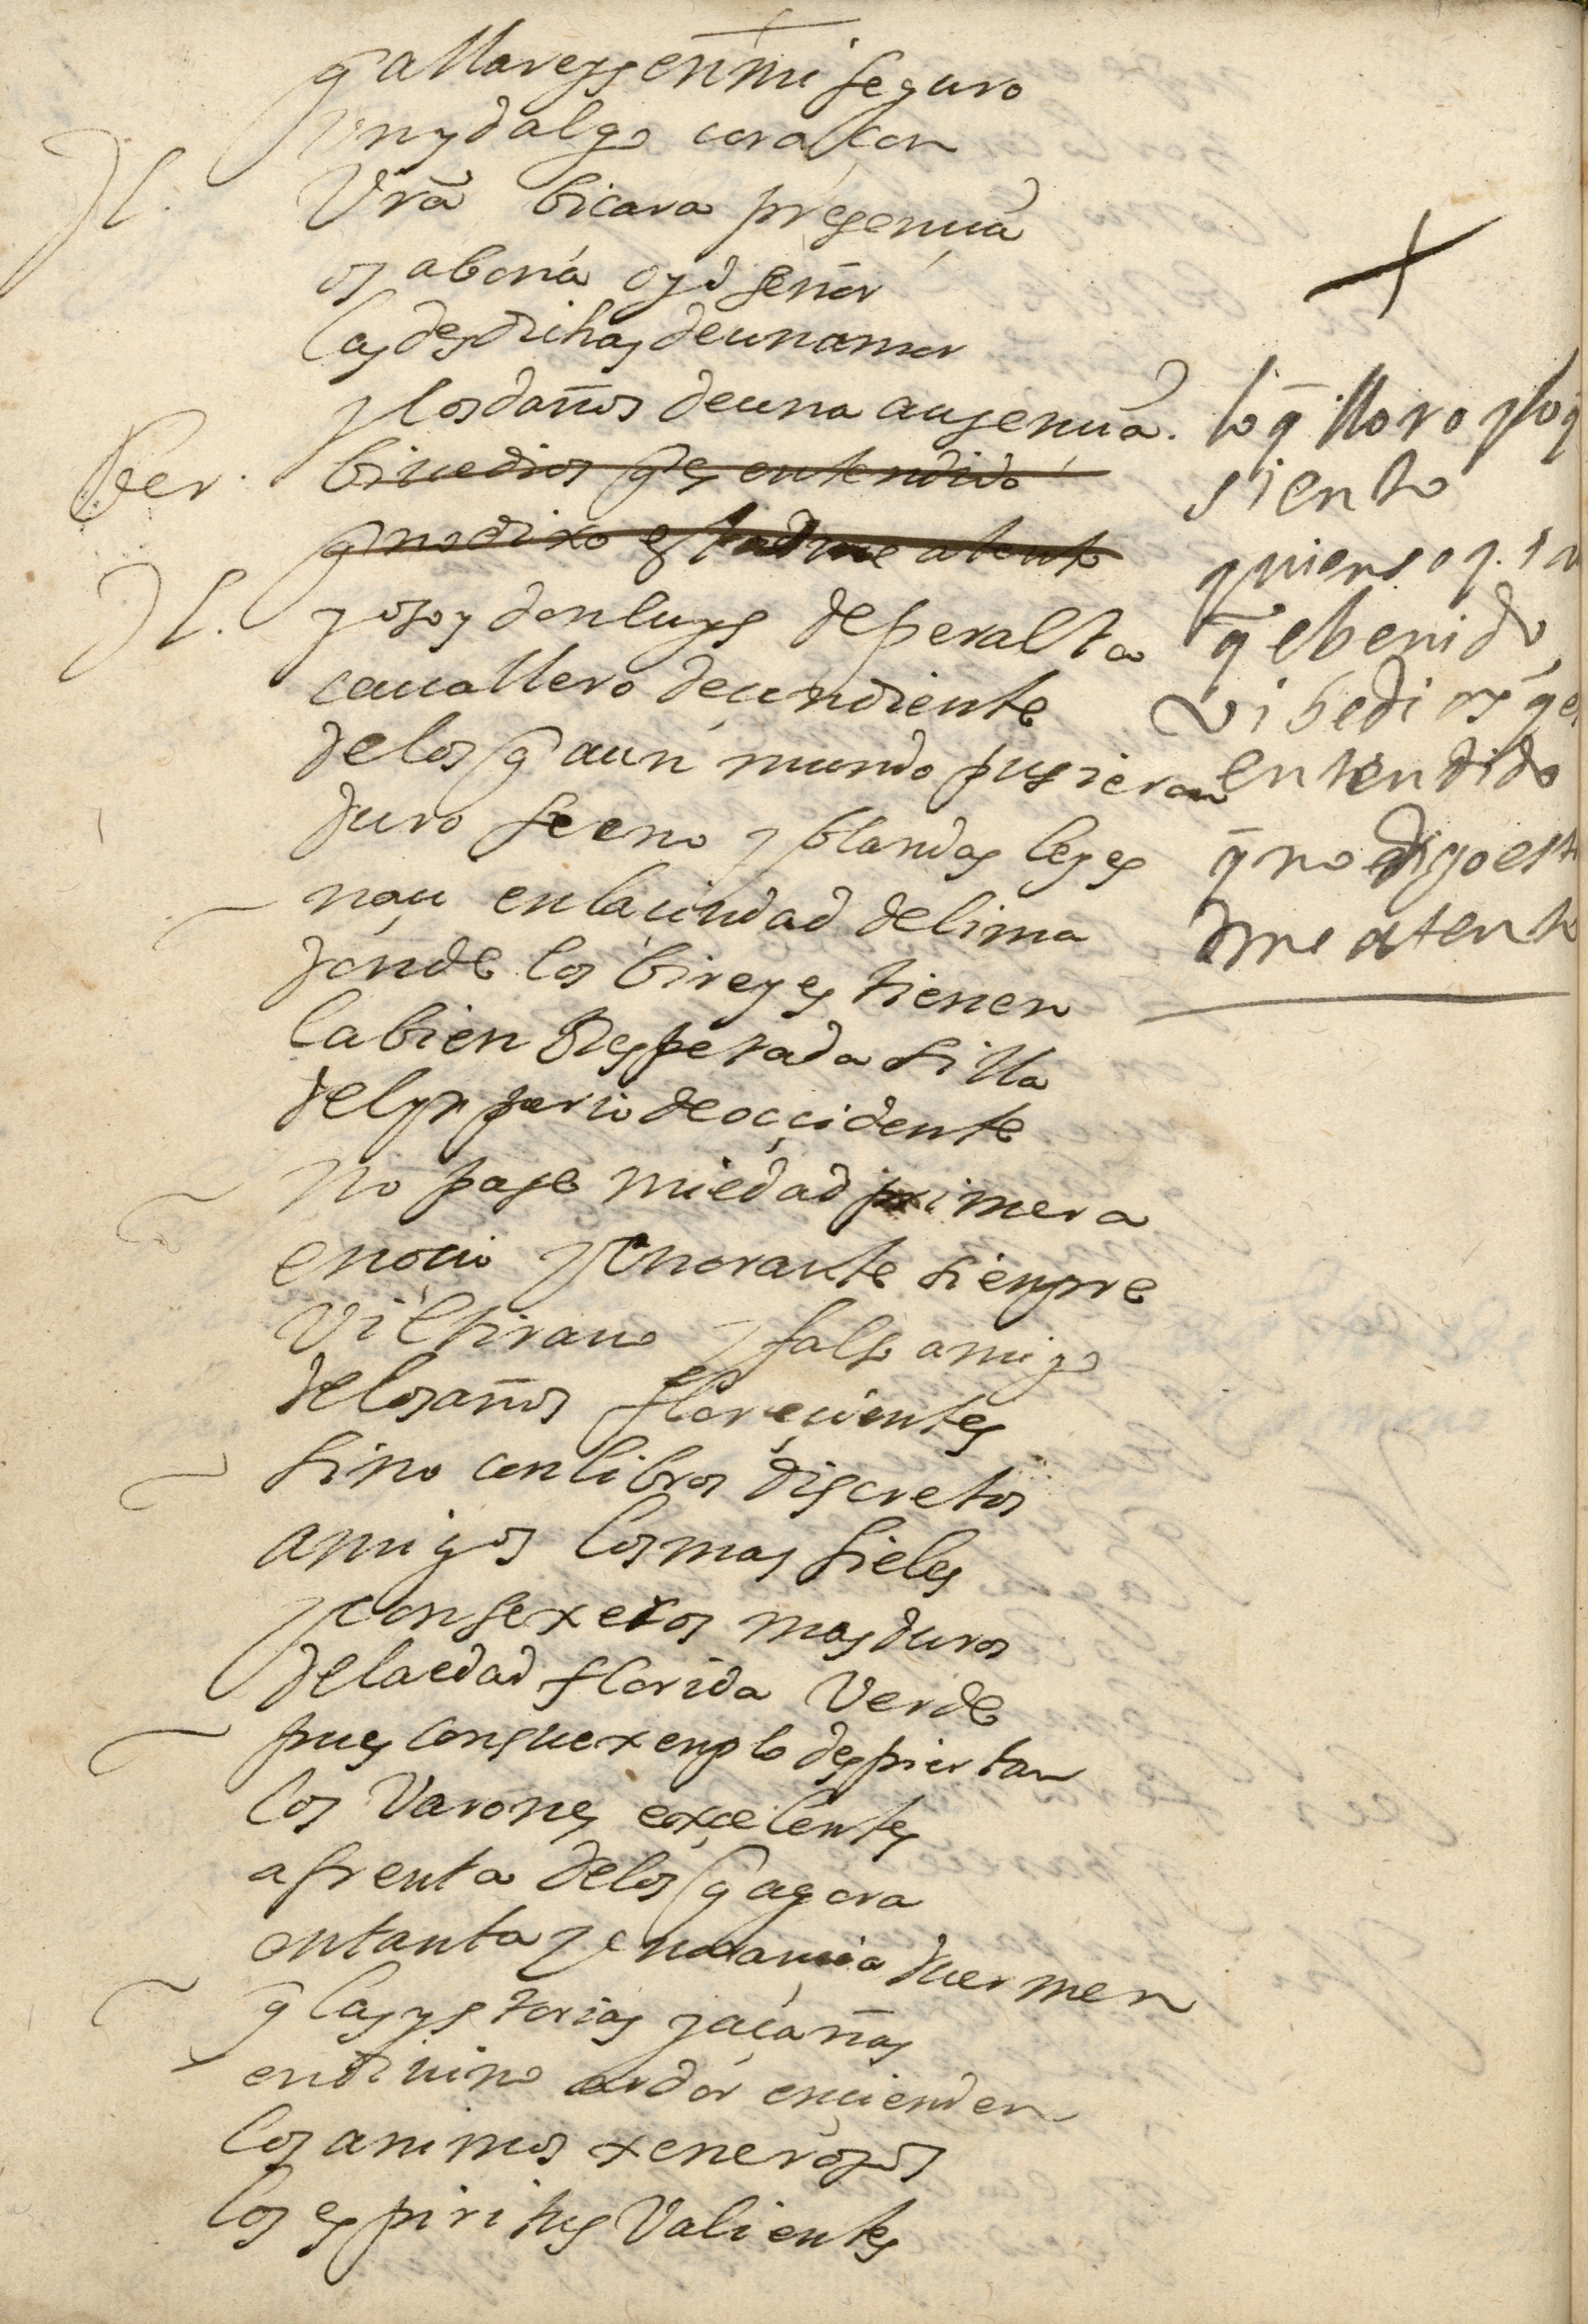 q̄ allareys en mi seguro
un ydalgo coraçon
Jl. Vrā biçara presençia
os abona oyd señor
las desdichas de un amor
y los daños de una ausençia.
Ber. bive dios q̄ es entendido
q̄ no dixo estadme atento
Jl. yo soy don luys de peralta
cavallero deçendiente
de los q̄ a un mundo pusieron
duro freno y blandas leyes
naçi en la çiudad de lima
donde los bireyes tienen
la bien Respetada silla
del ynperio de oççidente
no pase mi edad primera
en oçio ygnorante sienpre
vil tirano y falso amigo
de los años floreçientes
sino con libros discretos
amigos los mas fieles
y consexeros mas duros
de la edad florida verde
pues con su exenplo despiertan
los varones exçelentes
afrenta de los q̄ agora
en tanta ygnorançia duermen
q̄ las ystorias y açañas
en divino ardor ençienden
los animos xenerosos
los espiritus valientes
lo q̄ lloro y lo q̄
siento
quien soy.
q̄ e benido
vibe dios q̄ es
entendido
q̄ no digo esta
dme atento